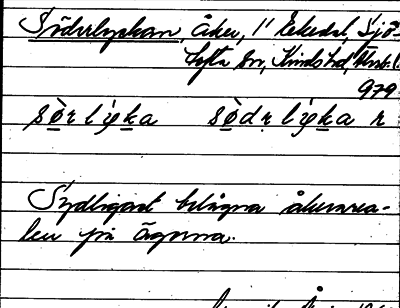 Söderlyckan, åker, 1" Ekedal, Sjö-
tofta sn, Kinds hd,
979
sø̀rlyka södrlyka r
Sydligast belägna åkerarea-
len på ägorna.